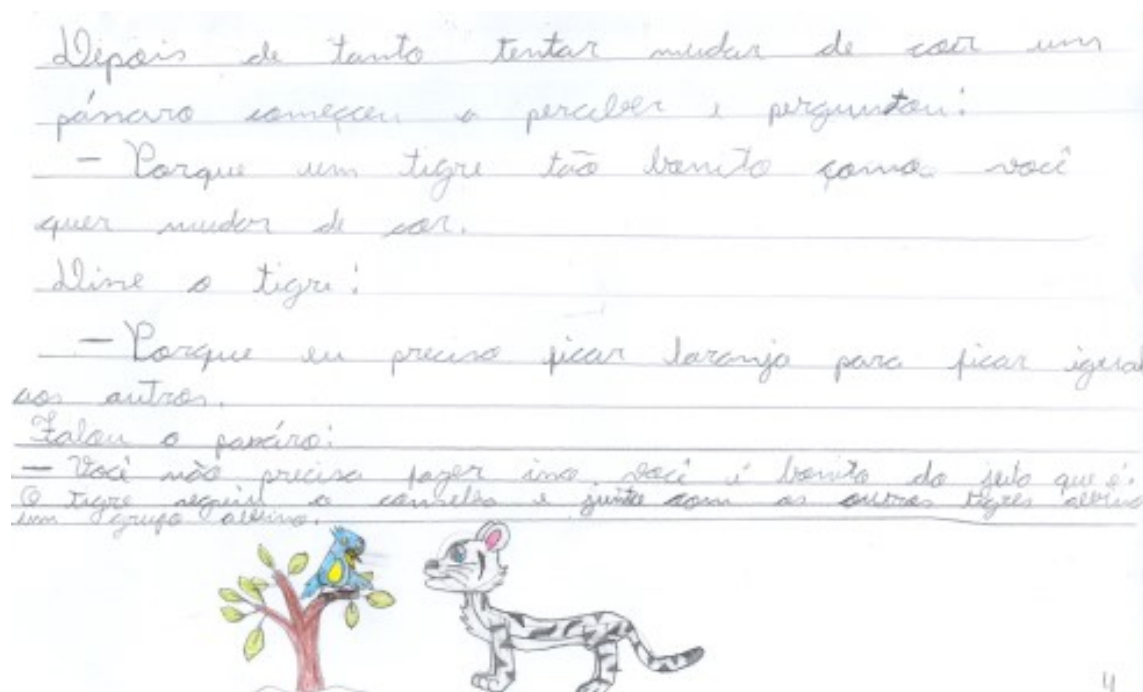 Depois de tanto tentar mudar de cor um
pássaro começou a perceber e perguntou:
- Porque um tigre tão bonito como você
quer mudar de cor.
Disse o tigre:
- Porque eu preciso ficar laranja para ficar igual
aos outros.
Falou o passáro:
- Você não precisa fazer isso, você é bonito do jeito que é.
O tigre seguiu o conselho e junto com os outros tigres albino
um grupo albino.
4